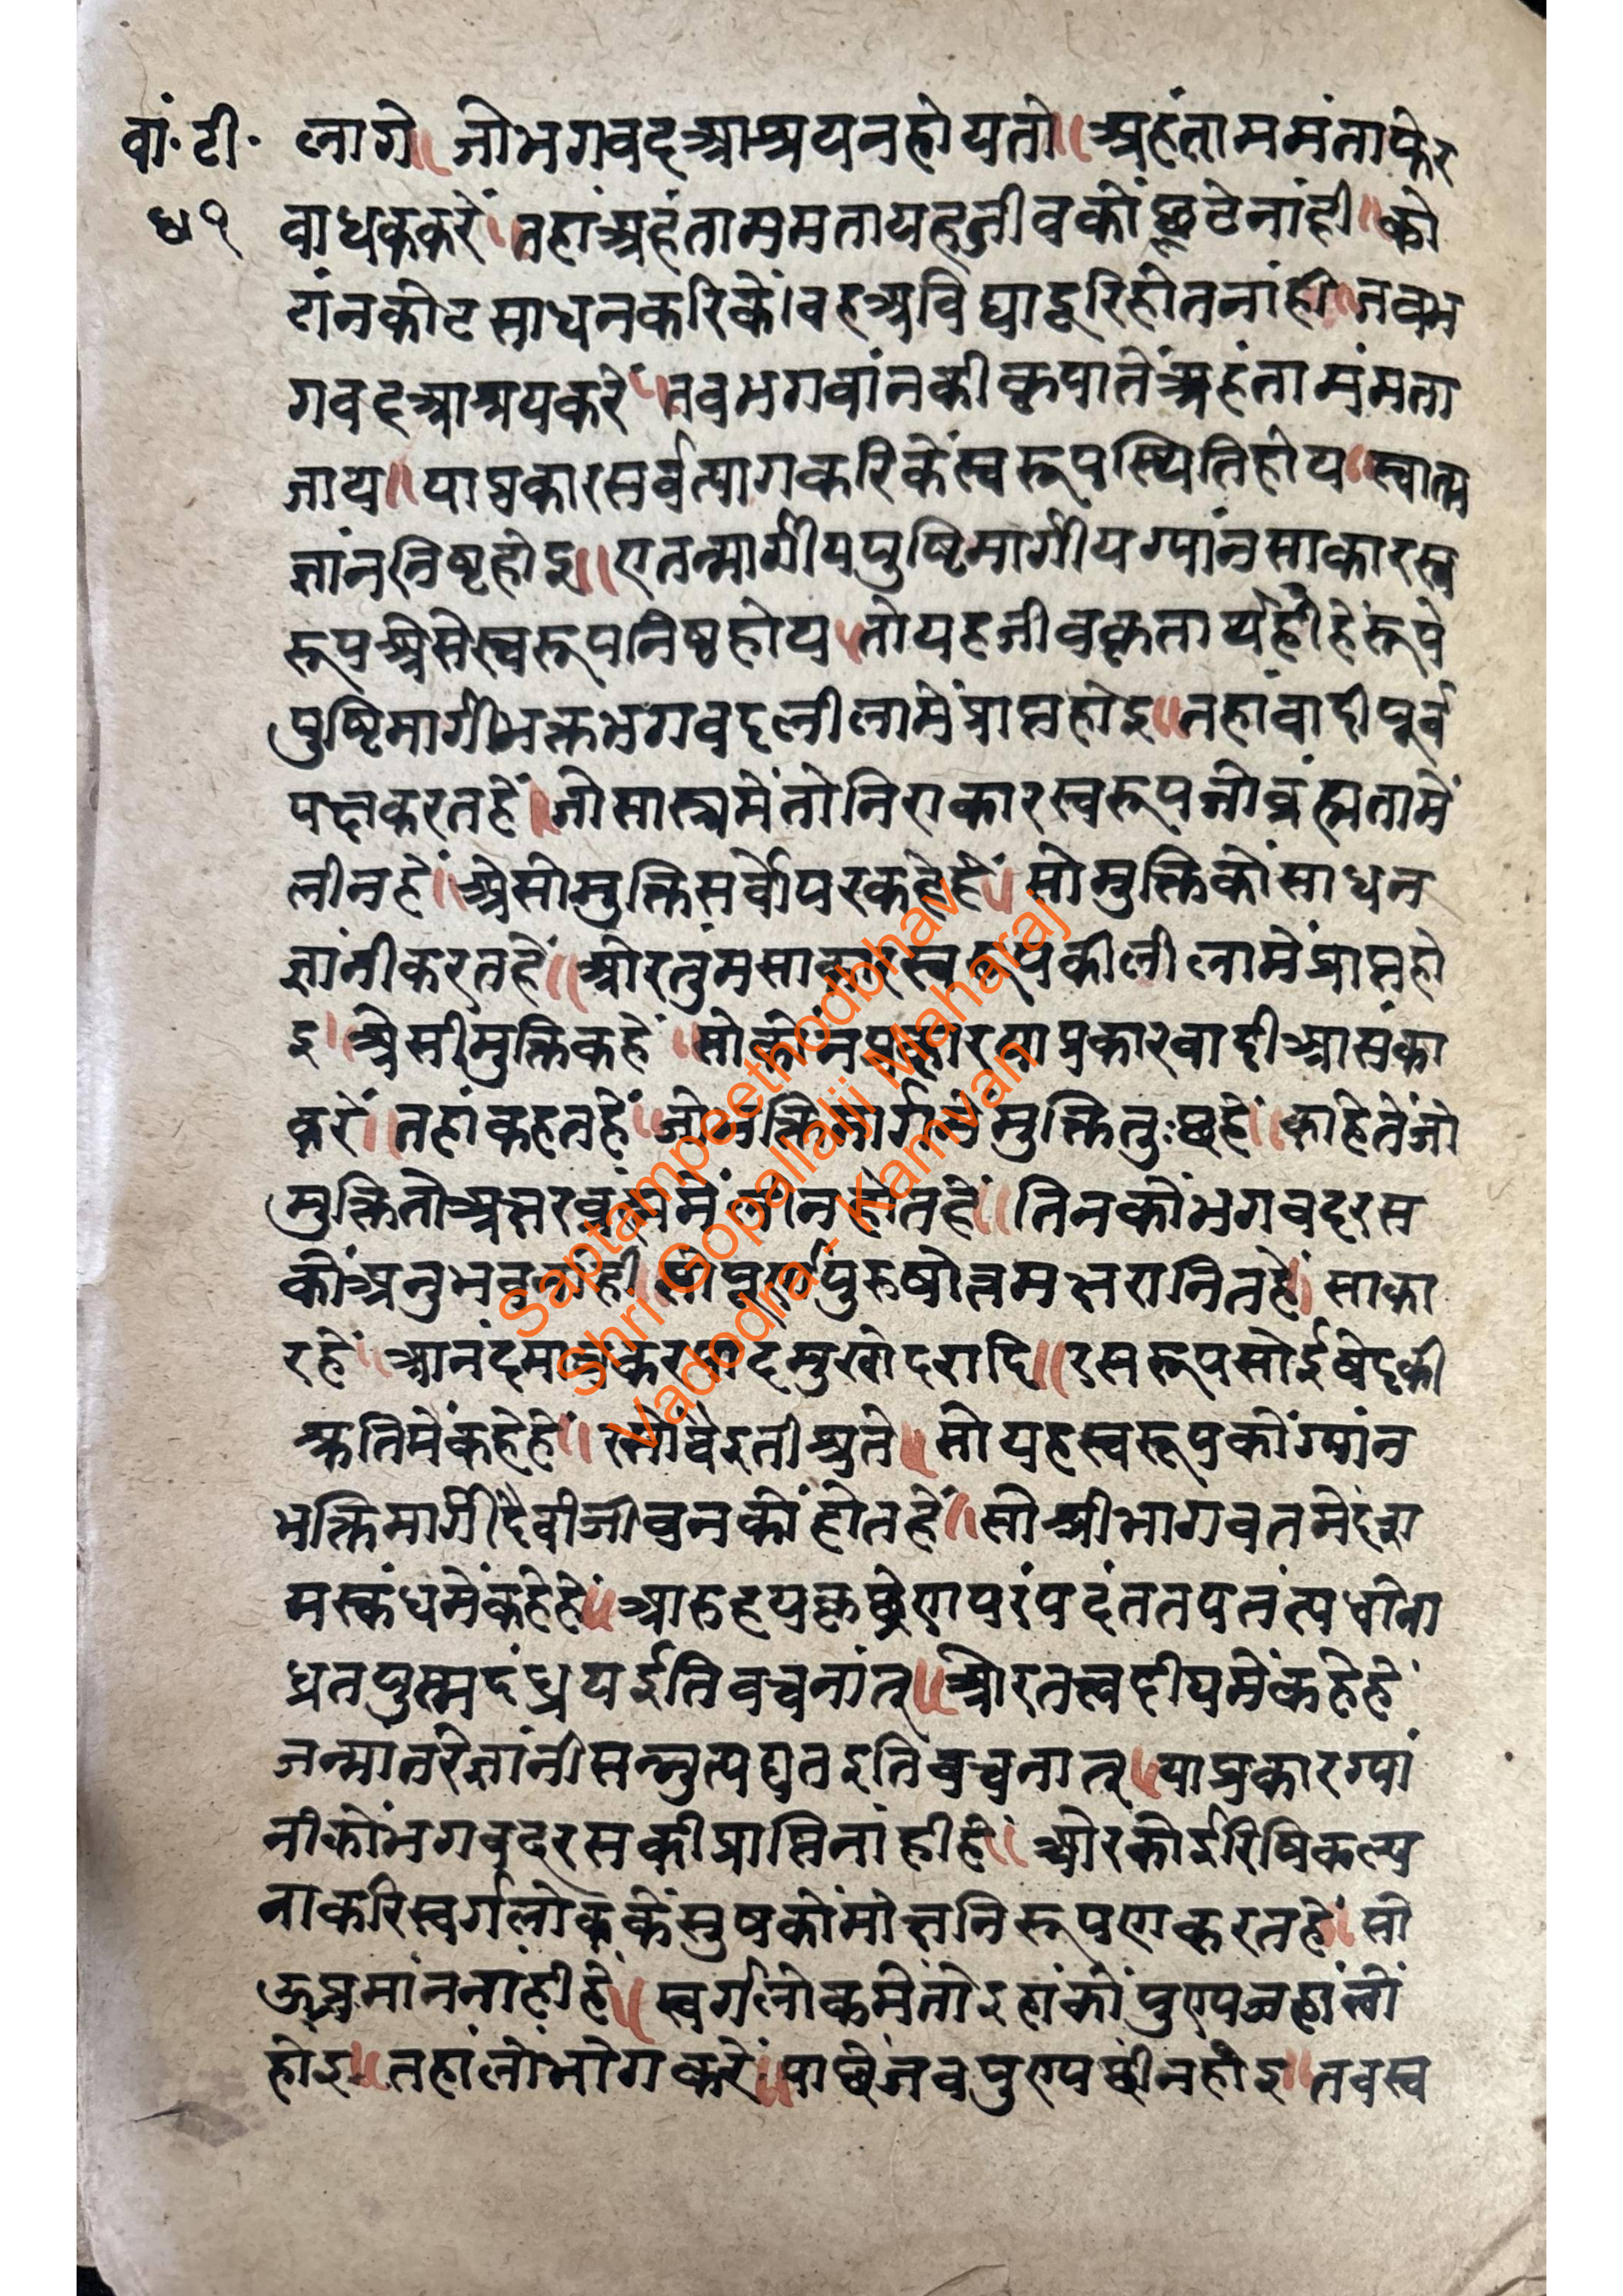 वां॰ टी॰
५१
लागे॥ जोभगवदआश्रयनहोयतो॥ अहंताममंताफेर
बाधककरें॥ तहांअहंताममतायहजीवकों छूटेनांही॥ को
टांनकोटसाधनकरिकें।वहअविद्यादूरिहोतनांही॥ जवभ
गवदआश्रयकरें॥ तवभगवांनकीकृपातेंअहंतामंमता
जाय॥ याप्रकारसर्वत्यागकरिकेंस्वरूपस्थितिहोय॥ स्वात्म
ज्ञांननिष्टहोइ॥ एतन्मार्गीयपुष्टिमार्गीयग्यांनसाकारस्व
रूपअेसेस्वरूपनिष्ठहोय॥ तोयहजीवकृतार्थहीहेंरूपे
पुष्टिमार्गीभक्तभगवदलीलामेंप्राप्तहोइ॥ तहांवादीपूर्व
पक्षकरतहें॥ जोसास्त्रमेंतोनिराकारस्वरूपजोब्रंह्मतामें
लीनहें॥ अेसीमुक्तिसर्वोपरकहेहें॥ सोमुक्तिकोंसाधन
ज्ञांनीकरतहें॥ ओरतुंमसाकारस्वरूपकीलीलामेंप्राप्तहो
इ॥ अेसीमुक्तिकहें॥ सोकोंनप्रकारयाप्रकारवादीआसंका
करें॥ तहांकहतहें॥ जोभक्तिमार्गमेंमुक्तितुःछहें॥ काहेतेंजो
मुक्तितोअक्षरब्रंह्ममेंलीनहोतहें॥ तिनकोंभगवदरस
कोंअनुभवनांही॥ सोपूर्णपुरुषोत्तमक्षरातितहें॥ साका
रहें॥ आनंदमात्रकरपादमुखोदरादि॥ रसरूपसोईवेदकी
श्रुतिमेंकहेहें॥ रसोवैइतीश्रुते॥ सोयहस्वरूपकोंग्यांन
भक्तिमार्गीदैवीजीवनकों होतहें॥ सोश्रीभागवतमेंदश
मस्कंधमेंकहेहें॥ आरुह्यकृछ्रेणपरंपदंततपतंत्यधोना
ध्रतयुस्मदंघ्रय ईतिवचनांत्॥ ओरतत्वदीपमेंकहेहें
जन्मांतरेज्ञांनीसन्नुत्पद्यतइतिवचनात्॥ याप्रकारग्यां
नीकोंभगवदरसकीप्राप्तिनांहीहें॥ ओरकोईरिषिकल्प
नाकरिस्वर्गलोककेंसुषकोंमोक्षनिरूपणकरतहें॥ सो
ऊप्रमांननांहीहें॥ स्वर्गलोकमेंतोइहांकोंपुण्यजहांलों
होइ॥ तहांलोंभोगकरें॥ पाछेंजवपुण्यछीनहोंइ॥ तवस्व
Saptampeethodbhav
Shri Gopallalji Maharaj
Vadodra - Kamvan